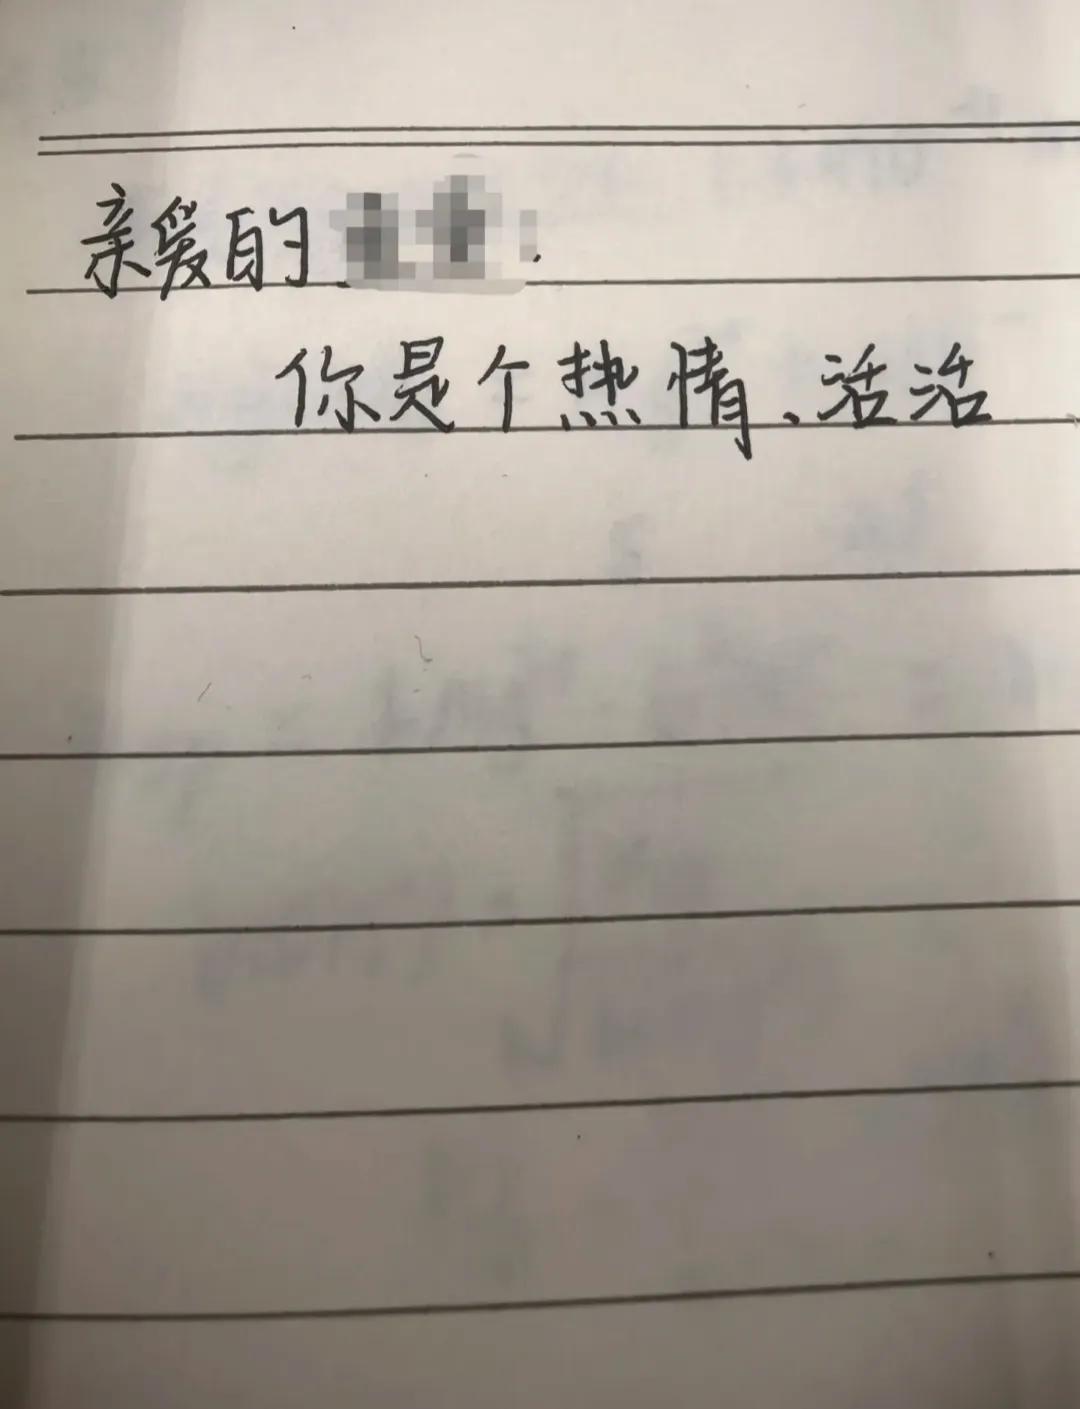 亲爱的
你是个热情、活活